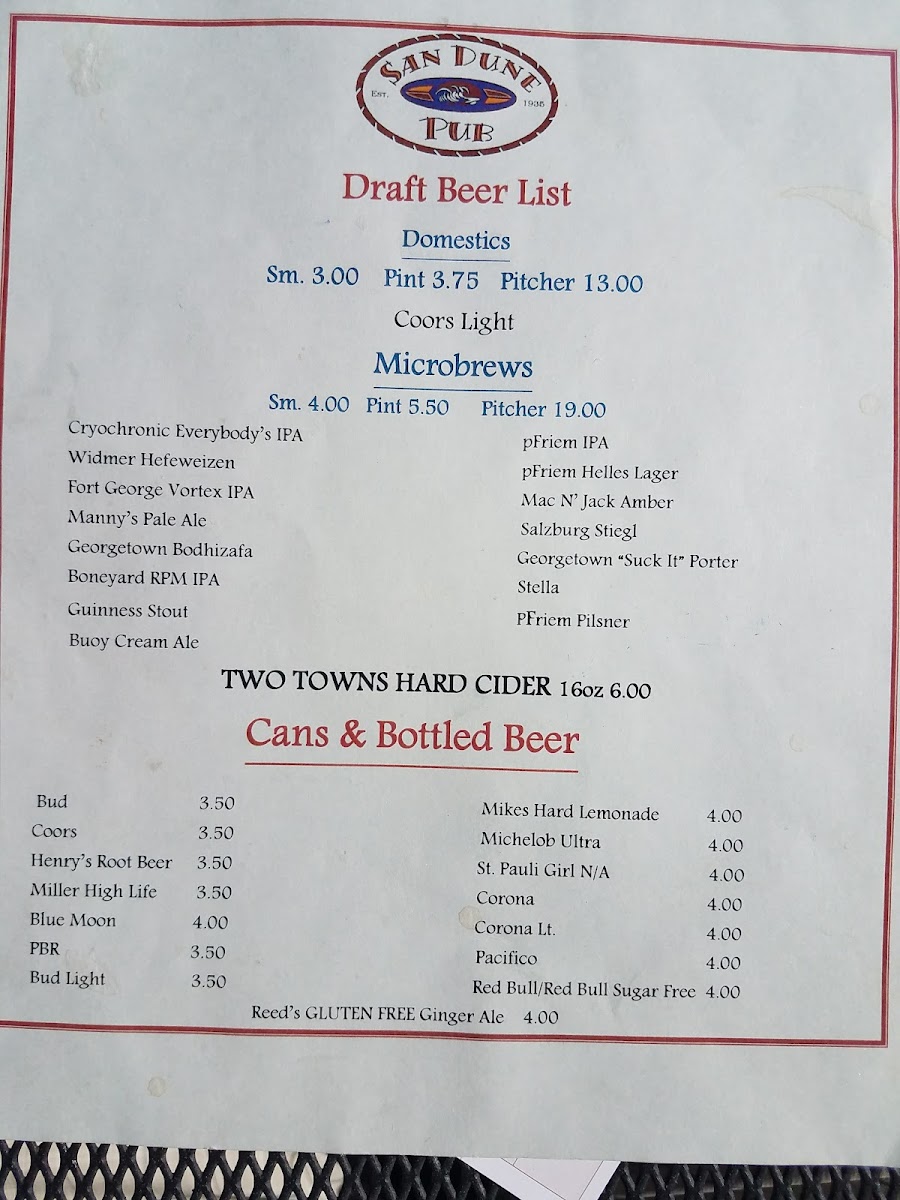 SAN DUNE
EST. 1935
PUB
Draft Beer List
Domestics
Sm. 3.00 Pint 3.75 Pitcher 13.00
Coors Light
Microbrews
Sm. 4.00 Pint 5.50 Pitcher 19.00
Cryochronic Everybody's IPA
Widmer Hefeweizen
Fort George Vortex IPA
Manny's Pale Ale
Georgetown Bodhizafa
Boneyard RPM IPA
Guinness Stout
Buoy Cream Ale
pFriem IPA
pFriem Helles Lager
Mac N' Jack Amber
Salzburg Stiegl
Georgetown "Suck It" Porter
Stella
PFriem Pilsner
TWO TOWNS HARD CIDER 16oz 6.00
Cans & Bottled Beer
Bud 3.50
Coors 3.50
Henry's Root Beer 3.50
Miller High Life 3.50
Blue Moon 4.00
PBR 3.50
Bud Light 3.50
Mikes Hard Lemonade 4.00
Michelob Ultra 4.00
St. Pauli Girl N/A 4.00
Corona 4.00
Corona Lt. 4.00
Pacifico 4.00
Red Bull/Red Bull Sugar Free 4.00
Reed's GLUTEN FREE Ginger Ale 4.00